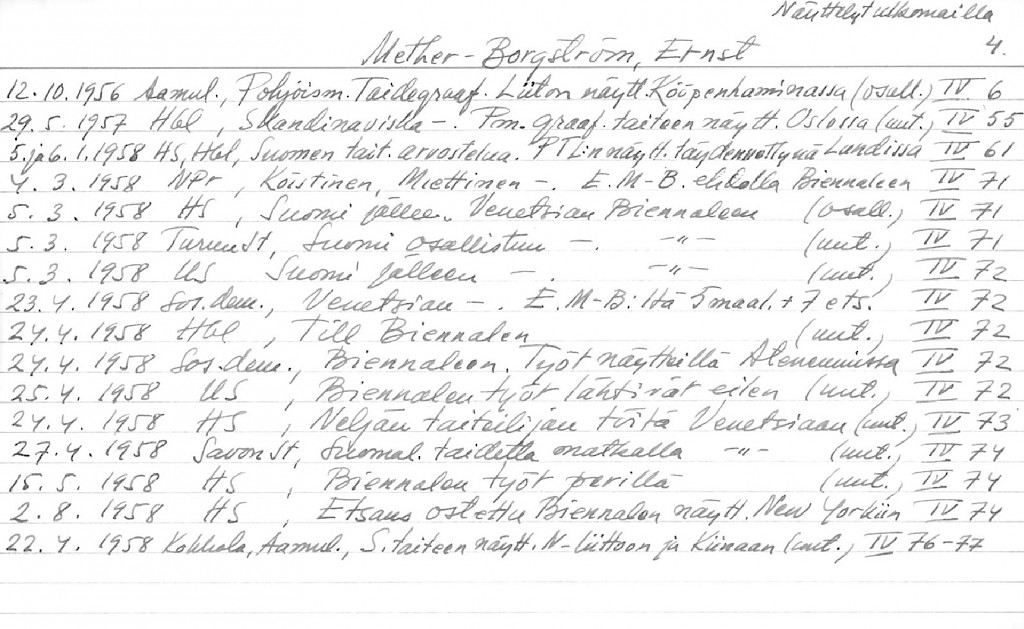 Näyttelyt ulkomailla
4.
Mether-Borgström, Ernst
12.10.1956 Aamul., Pohjoism. Taidegraaf. Liiton näytt. Kööpenhaminassa (osall.) IV 6
29.5.1957 Hbl, Skandinaviska -. Pm. graaf. taiteen näytt. Oslossa (mt.) IV 55
5. ja 6.1.1958 HS, Hbl, Suomen tait. arvostelua. PTL:n näytt. täydennettynä Lundissa IV 61
4.3.1958 NPr, Koistinen, Miettinen -. E.M-B. ehdolla Biennaleen IV 71
5.3.1958 HS, Suomi jälleen. Venetsian Biennaleen (osall.) IV 71
5.3.1958 TurunSt, Suomi osallistuu -. -"- (mt.) IV 71
5.3.1958 US Suomi jälleen -. -"- (mt.) IV 72
23.4.1958 Sos.dem., Venetsian -. E.M-B:ltä 5 maal. + 7 ets. IV 72
24.4.1958 Hbl, Till Biennalen (mt.) IV 72
24.4.1958 Sos.dem., Biennaleen. Työt näytteillä Ateneumissa IV 72
25.4.1958 US, Biennalen työt lähtivät eilen (mt.) IV 72
24.4.1958 HS, Neljän taiteilijan töitä Venetsiaan (mt.) IV 73
27.4.1958 SavonSt, Suomal. taidetta matkalla -"- (mt.) IV 74
15.5.1958 HS, Biennalen työt perillä (mt.) IV 74
2.8.1958 HS, Etsaus ostettu Biennalen näytt. New Yorkiin IV 74
22.4.1958 Kokkola, Aamul., S. taiteen näytt. N-liittoon ja Kiinaan (mt.) IV 76-77